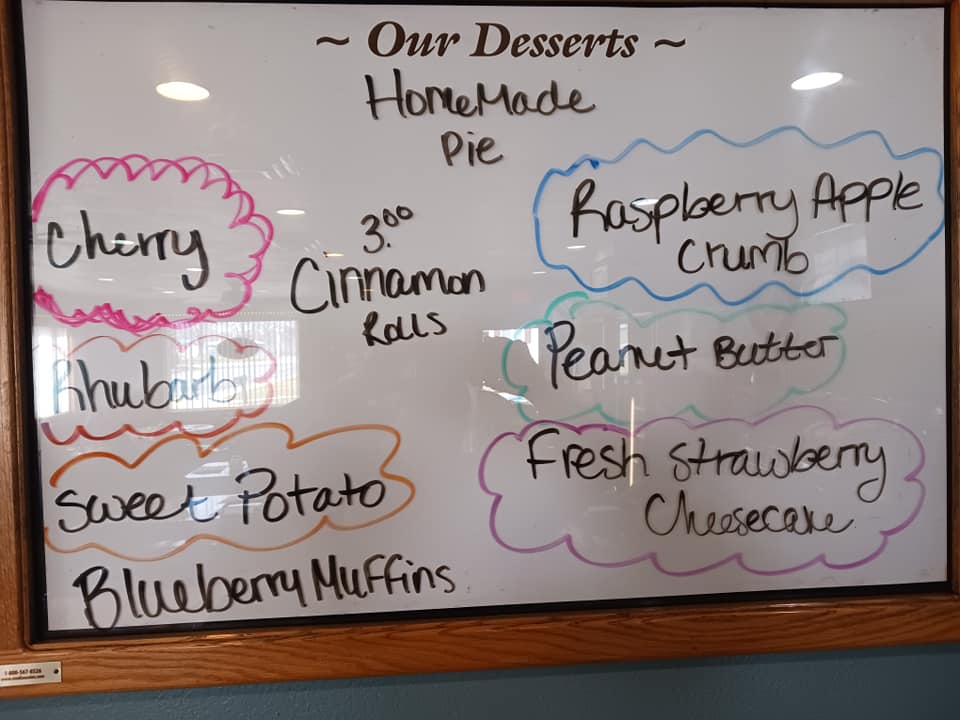 ~ Our Desserts ~
HomeMade
Pie
Cherry
Rhubarb
Sweet Potato
Blueberry Muffins
3.00
Cinnamon
Rolls
Raspberry Apple
Crumb
Peanut Butter
Fresh Strawberry
Cheesecake
1-800-567-8526